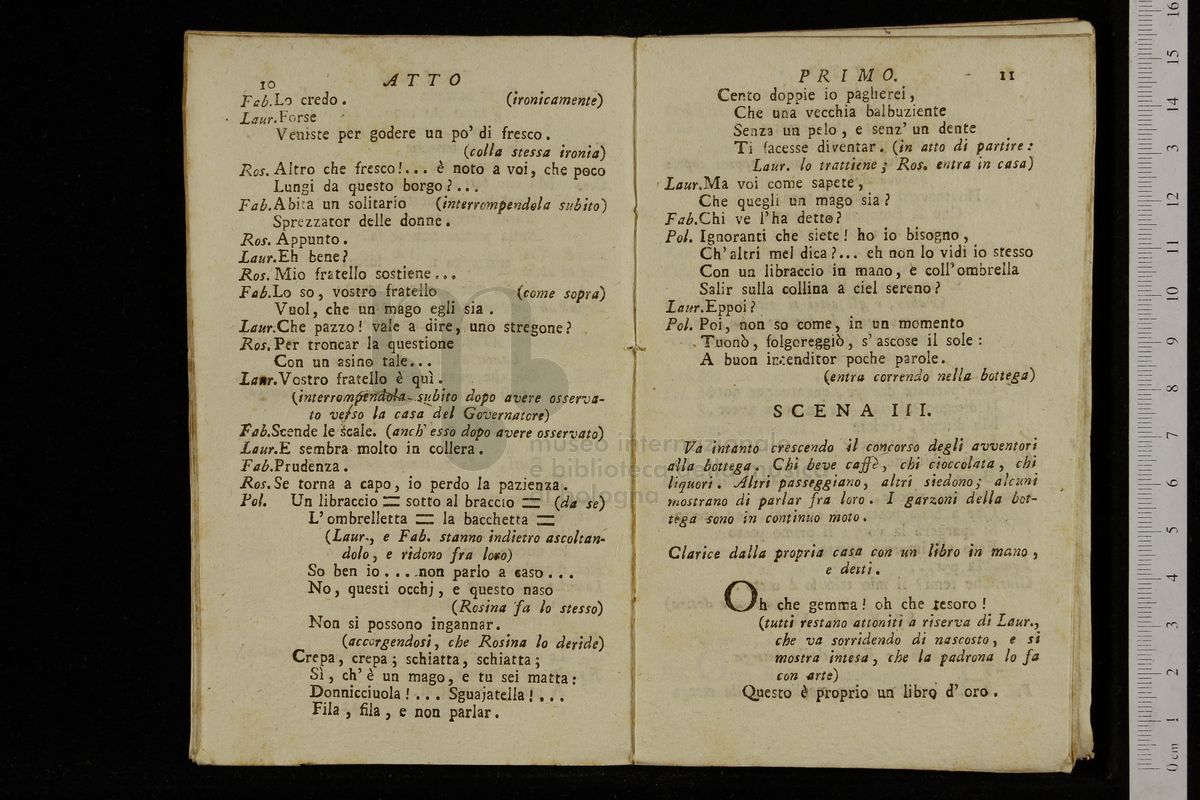 10 ATTO
Fab. Lo credo. (ironicamente)
Laur. Forse
Veniste per godere un po' di fresco.
(colla stessa ironia)
Ros. Altro che fresco!... è noto a voi, che poco
Lungi da questo borgo?...
Fab. Abita un solitario (interrompendola subito)
Sprezzator delle donne.
Ros. Appunto.
Laur. Eh bene?
Ros. Mio fratello sostiene...
Fab. Lo so, vostro fratello (come sopra)
Vuol, che un mago egli sia.
Laur. Che pazzo! vale a dire, uno stregone?
Ros. Per troncar la questione
Con un asino tale...
Laur. Vostro fratello è quì.
(interrompendola subito dopo avere osserva-
to verso la casa del Governatore)
Fab. Scende le scale. (anch' esso dopo avere osservato)
Laur. E sembra molto in collera.
Fab. Prudenza.
Ros. Se torna a capo, io perdo la pazienza.
Pol. Un libraccio = sotto al braccio = (da se)
L'ombrelletta = la bacchetta =
(Laur., e Fab. stanno indietro ascoltan-
dolo, e ridono fra loro)
So ben io.... non parlo a caso...
No, questi occhj, e questo naso
(Rosina fa lo stesso)
Non si possono ingannar.
(accorgendosi, che Rosina lo deride)
Crepa, crepa; schiatta, schiatta;
Sì, ch' è un mago, e tu sei matta:
Donnicciuola!... Sguajatella!...
Fila, fila, e non parlar.
PRIMO. 11
Cento doppie io pagherei,
Che una vecchia balbuziente
Senza un pelo, e senz' un dente
Ti facesse diventar. (in atto di partire:
Laur. lo trattiene; Ros. entra in casa)
Laur. Ma voi come sapete,
Che quegli un mago sia?
Fab. Chi ve l'ha detto?
Pol. Ignoranti che siete! ho io bisogno,
Ch' altri mel dica?... eh non lo vidi io stesso
Con un libraccio in mano, e coll' ombrella
Salir sulla collina a ciel sereno?
Laur. Eppoi?
Pol. Poi, non so come, in un momento
Tuonò, folgoreggiò, s' ascose il sole:
A buon intenditor poche parole.
(entra correndo nella bottega)
SCENA III.
Va intanto crescendo il concorso degli avventori
alla bottega. Chi beve caffè, chi cioccolata, chi
liquori. Altri passeggiano, altri siedono; alcuni
mostrano di parlar fra loro. I garzoni della bot-
tega sono in continuo moto.
Clarice dalla propria casa con un libro in mano,
e detti.
Oh che gemma! oh che tesoro!
(tutti restano attoniti a riserva di Laur.,
che va sorridendo di nascosto, e si
mostra intesa, che la padrona lo fa
con arte)
Questo è proprio un libro d' oro.
museo internazionale
e biblioteca della musica
di bologna
0 cm 1 2 3 4 5 6 7 8 9 10 11 12 13 14 15 16